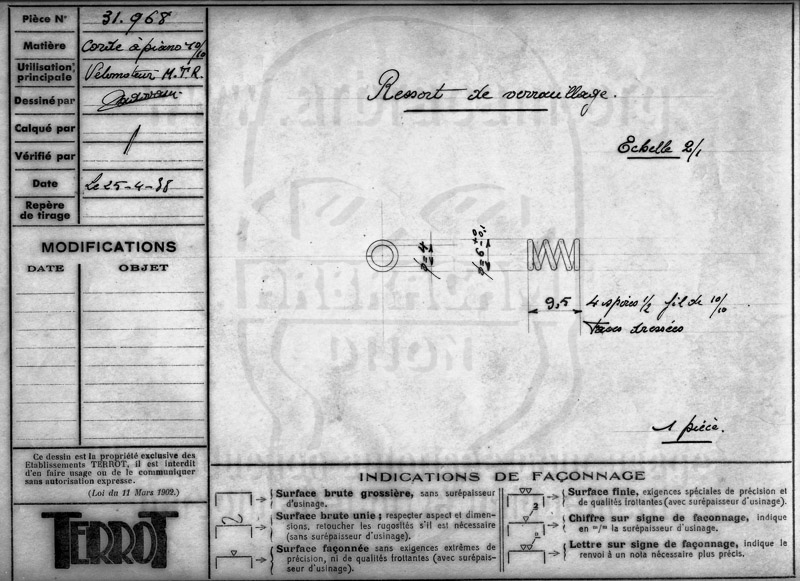 Pièce Nº 31.968
Matière Corde à piano 10/10
Utilisation principale Vélomoteur M.T.R.
Dessiné par
Calqué par
Vérifié par
Date Le 25-4-38
Repère de tirage
MODIFICATIONS
DATE OBJET
Ce dessin est la propriété exclusive des
Etablissements TERROT, il est interdit
d'en faire usage ou de le communiquer
sans autorisation expresse.
(Loi du 11 Mars 1902.)
TERROT
Ressort de verrouillage.
Echelle 2/1
ø=4
ø=6 +0 -0,1
9,5
4 spires 1/2 fil de 10/10
Faces dressées
1 pièce.
INDICATIONS DE FAÇONNAGE
Surface brute grossière, sans surépaisseur
d'usinage.
Surface brute unie ; respecter aspect et dimen-
sions, retoucher les rugosités s'il est nécessaire
(sans surépaisseur d'usinage).
Surface façonnée sans exigences extrêmes de
précision, ni de qualités frottantes (avec surépais-
seur d'usinage).
Surface finie, exigences spéciales de précision et
de qualités frottantes (avec surépaisseur d'usinage).
2
Chiffre sur signe de façonnage, indique
en m/m la surépaisseur d'usinage.
Lettre sur signe de façonnage, indique le
renvoi à un nota nécessaire plus précis.